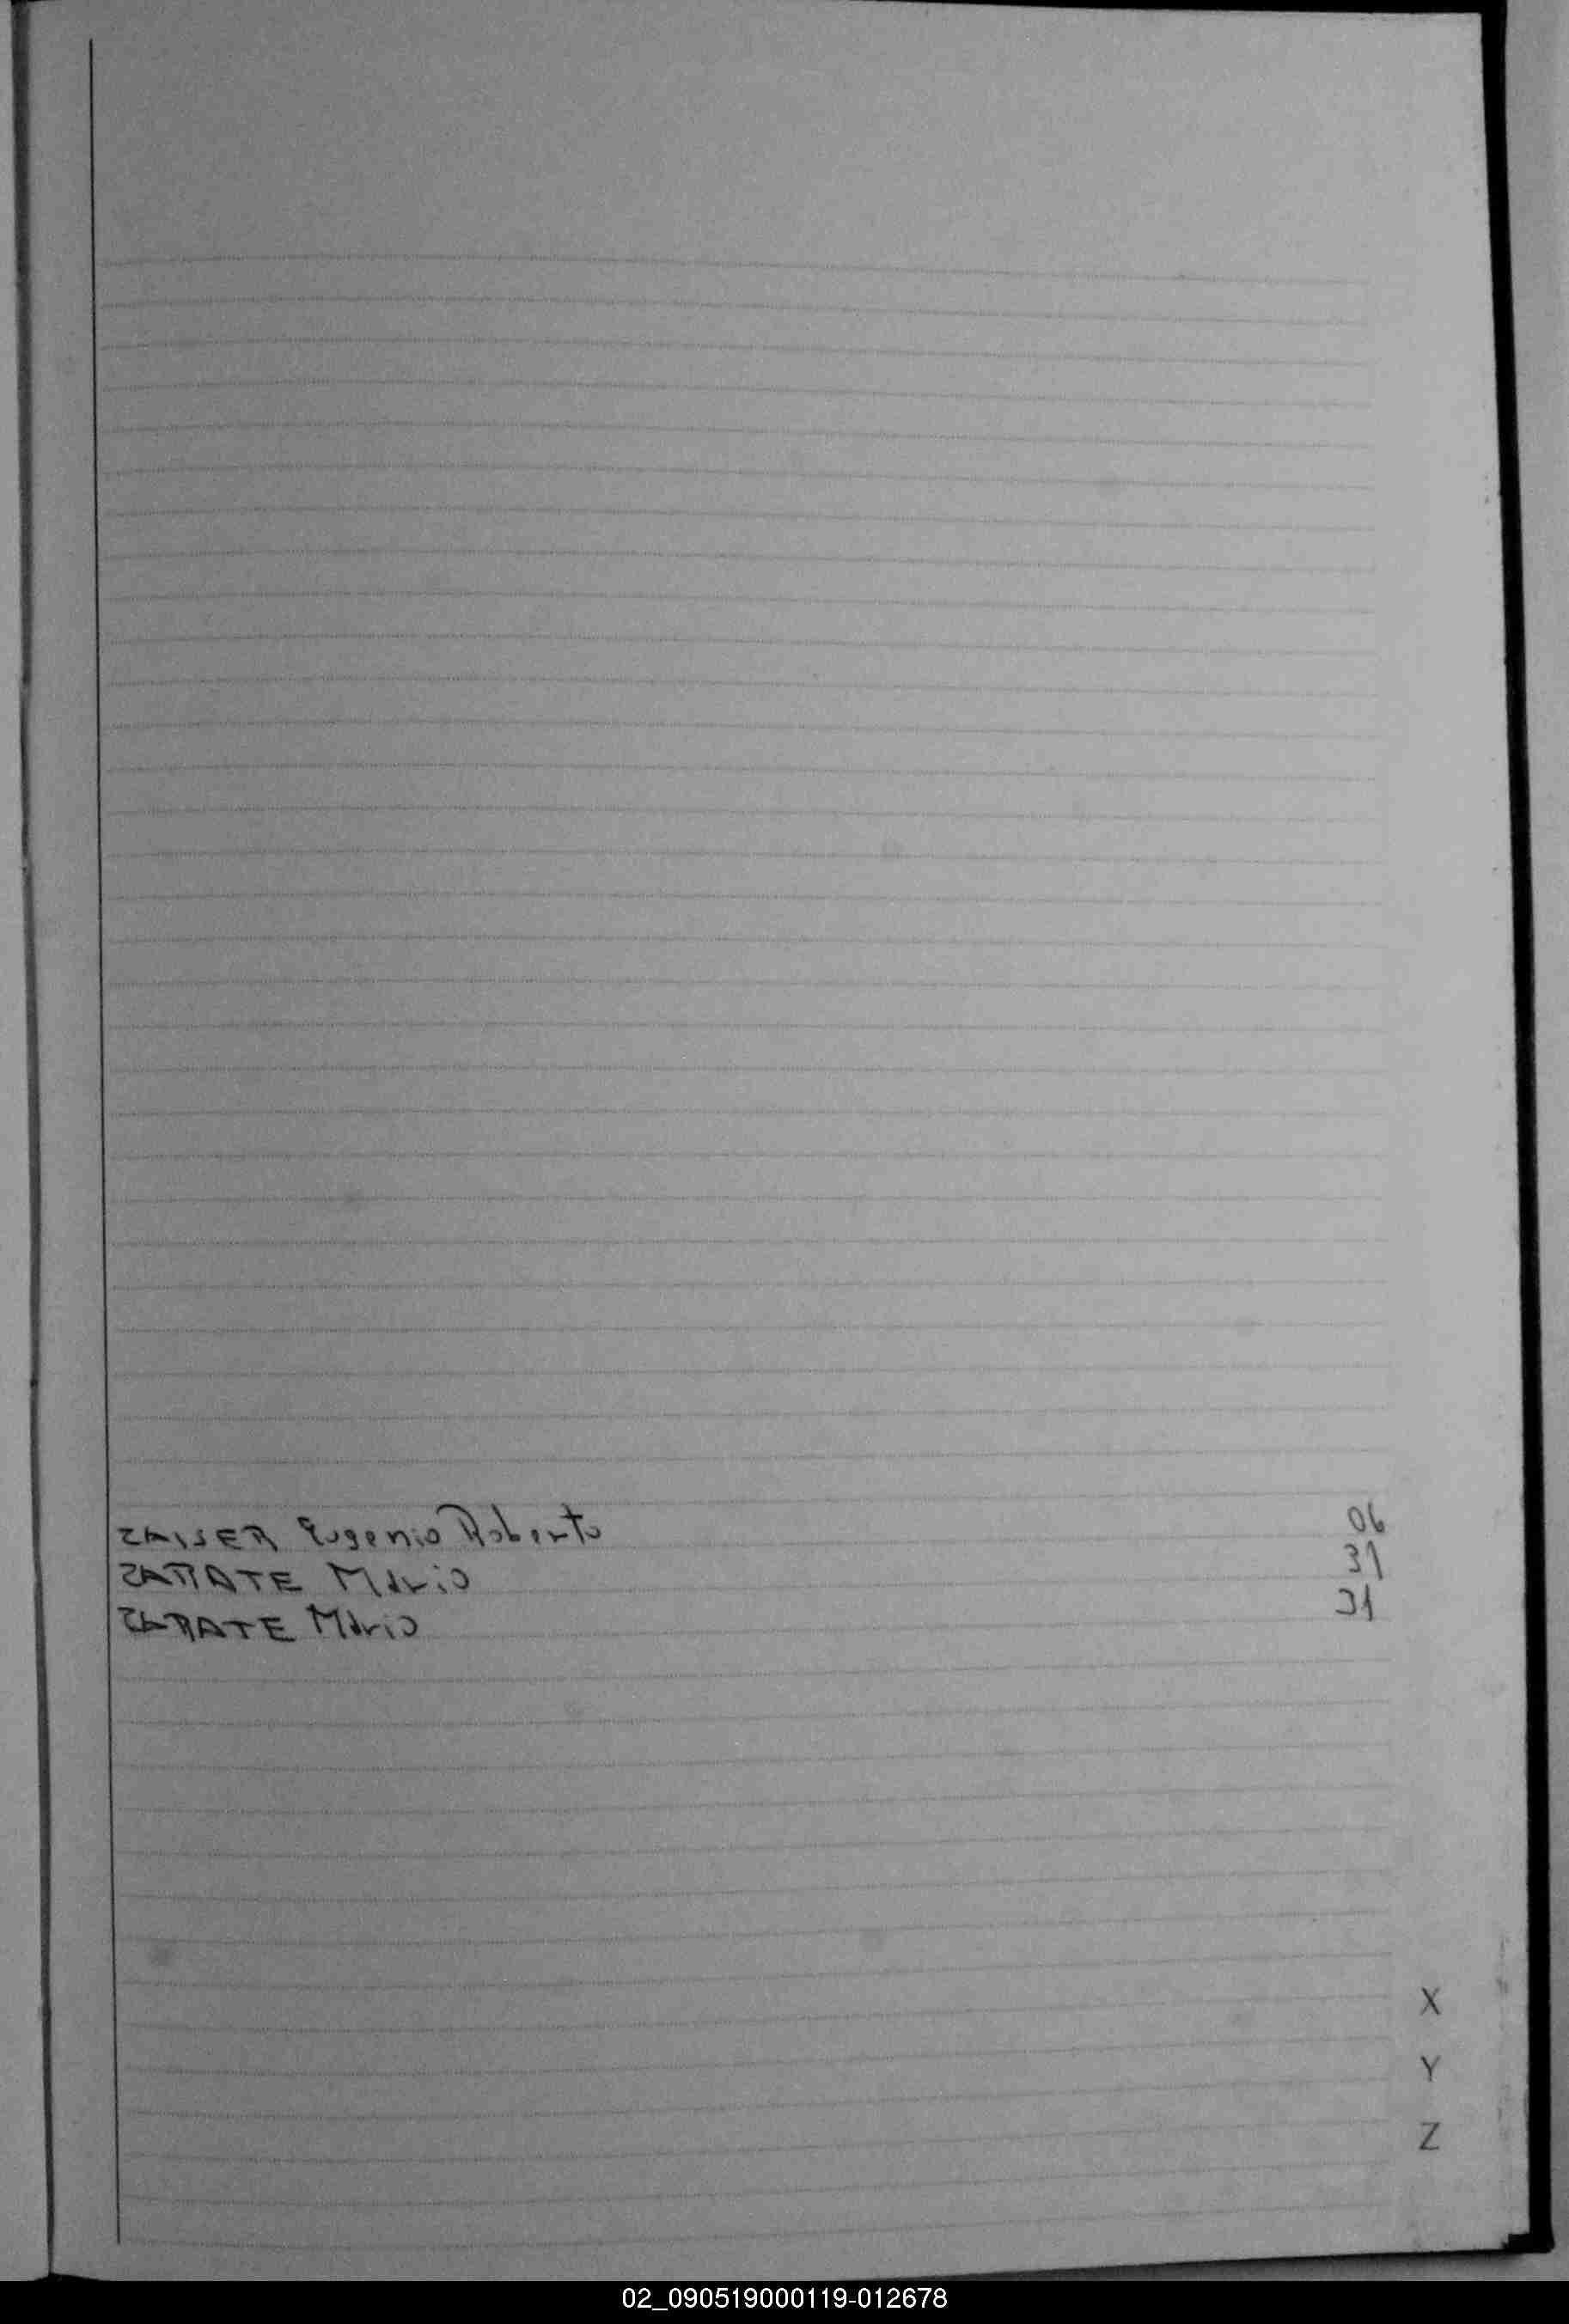 ZAISER Eugenio Roberto 06
ZARATE Mario 31
ZARATE Mario 31
X
Y
Z
02_090519000119-012678